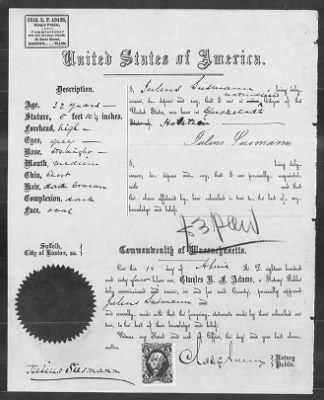 CHAS. B. F. ADAMS,
Notary Public,
Commissioner
BOSTON, MASS.
United States of America.
Description.
I, Julius Susmann being duly
naturalized
sworn, do depose and say, that I am a Citizen of the
Age, 32 years
United States, was born in Gluckstadt
Stature, 5 feet 10½ inches.
Holstein
Forehead, high
Eyes, grey
Julius Susmann
Nose, straight
being duly
Mouth, medium
sworn, do depose and say, that I am personally acquainted
Chin, short
with and that
Hair, dark brown
the above affidavit by him subscribed is true, to the best of my
Complexion, dark
knowledge and belief.
Face, oval
Suffolk,
City of Boston, ss.
Commonwealth of Massachusetts.
On this day of A. D. eighteen hundred
and sixty before me, Charles B. F. Adams, a Notary Public
duly commissioned and sworn, in and for said County, personally appeared
Julius Susmann and
and severally made oath that the foregoing statements made by them subscribed are
true, to the best of their knowledge and belief.
Witness my Hand and Seal of Office, the day and year last above
written.
Notary
Public.
Julius Susmann